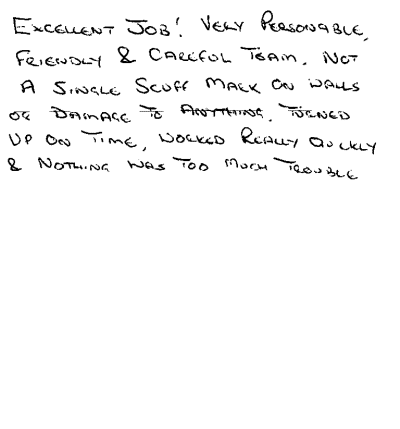 EXCELLENT JOB! VERY PERSONABLE,
FRIENDLY & CAREFUL TEAM. NOT
A SINGLE SCUFF MARK ON WALLS
OR DAMAGE TO ANYTHING. TURNED
UP ON TIME, WORKED REALLY QUICKLY
& NOTHING WAS TOO MUCH TROUBLE